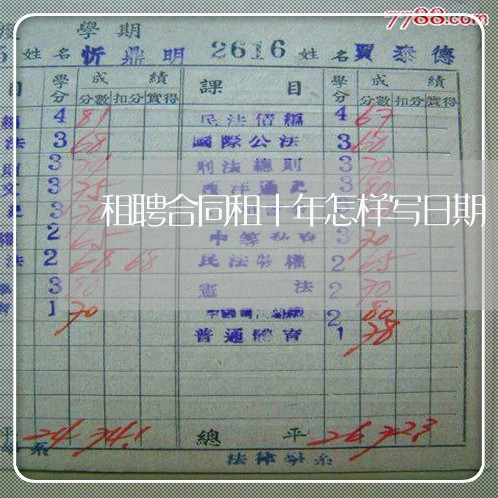 7788.com
學期
姓名 忻鼎明 2616 姓名 賈泰德
目 學分 成績 課目 學分 成績
分數 扣分 實得 分數 扣分 實得
4 81 民法債編 4 67
法 3 68 國際公法 3 60
3 刑法總則 3 70
3 75 西洋通史 3
租聘合同租十年怎样写日期
2 65 3 70
法 2 68 68 民法物權 2 65
3 80 憲法 2 70
1 70 2 80
普通體育 1 78
平 24 74.1 總平 26 72.3
系 法律學系